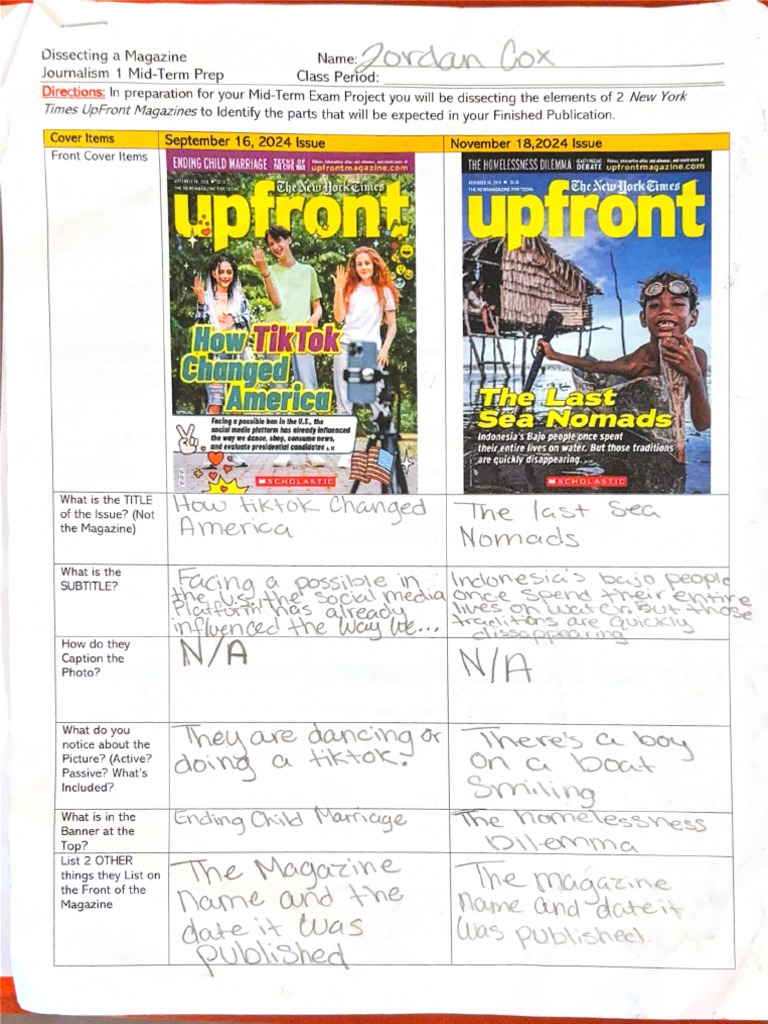 Dissecting a Magazine
Name: Jordan Cox
Journalism 1 Mid-Term Prep
Class Period:
Directions: In preparation for your Mid-Term Exam Project you will be dissecting the elements of 2 New York
Times UpFront Magazines to Identify the parts that will be expected in your Finished Publication.
Cover Items
September 16, 2024 Issue
November 18,2024 Issue
Front Cover Items
ENDING CHILD MARRIAGE
upfrontmagazine.com
The New York Times
upfront
How TikTok
Changed
America
Facing a possible ban in the U.S., the
social media platform has already influenced
the way we dance, shop, consume news,
and evaluate presidential candidates
SCHOLASTIC
THE HOMELESSNESS DILEMMA
DEBATE
upfrontmagazine.com
The New York Times
upfront
The Last
Sea Nomads
Indonesia's Bajo people once spent
their entire lives on water. But those traditions
are quickly disappearing.
SCHOLASTIC
What is the TITLE
of the Issue? (Not
the Magazine)
How tiktok Changed
America
The last Sea
Nomads
What is the
SUBTITLE?
Facing a possible in
the U.S, the social media
Platform has already
influenced the way we...
Indonesia's bajo people
once spend their entire
lives on water. But those
traditions are quickly
dissappearing
How do they
Caption the
Photo?
N/A
N/A
What do you
notice about the
Picture? (Active?
Passive? What's
Included?)
They are dancing or
doing a tiktok.
There's a boy
on a boat
Smiling
What is in the
Banner at the
Top?
Ending Child Marriage
The homelessness
Dilemma
List 2 OTHER
things they List on
the Front of the
Magazine
The Magazine
name and the
date it was
published
The magazine
name and date it
was published.